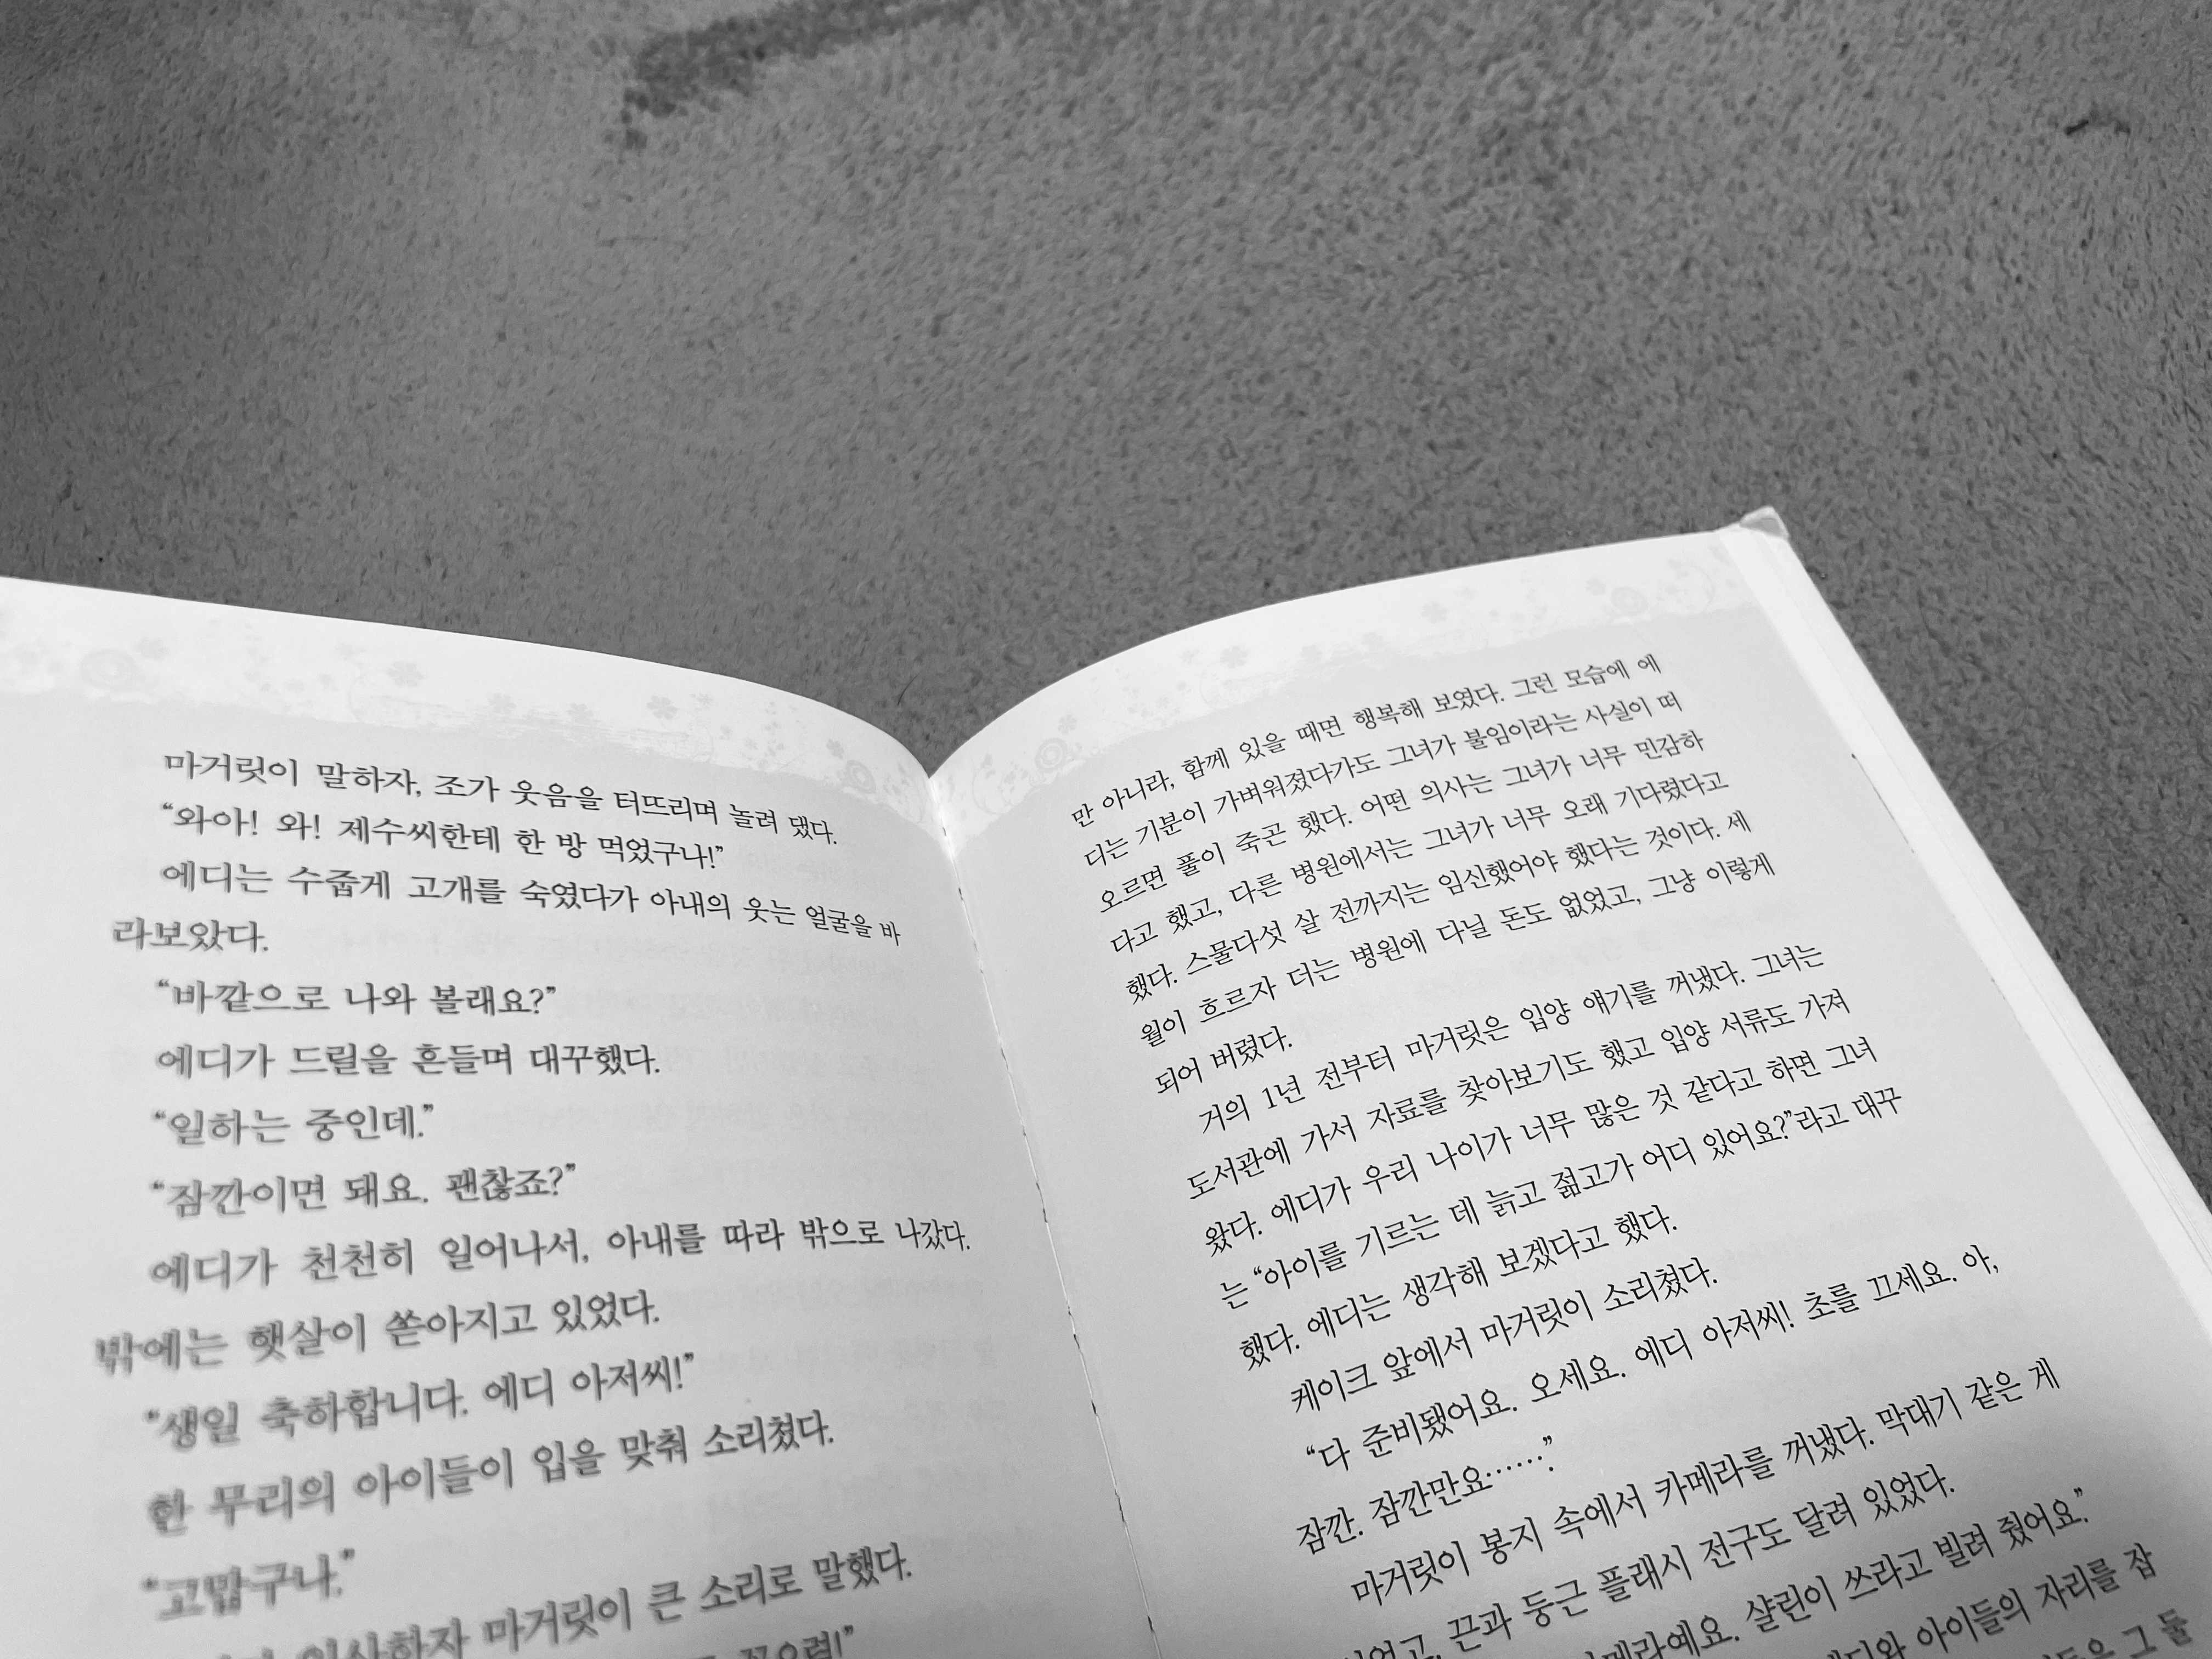 마거릿이 말하자, 조가 웃음을 터뜨리며 놀려 댔다.
“와아! 와! 제수씨한테 한 방 먹었구나!”
에디는 수줍게 고개를 숙였다가 아내의 웃는 얼굴을 바
라보았다.
“바깥으로 나와 볼래요?”
에디가 드릴을 흔들며 대꾸했다.
“일하는 중인데.”
“잠깐이면 돼요. 괜찮죠?”
에디가 천천히 일어나서, 아내를 따라 밖으로 나갔다.
밖에는 햇살이 쏟아지고 있었다.
“생일 축하합니다. 에디 아저씨!”
한 무리의 아이들이 입을 맞춰 소리쳤다.
“고맙구나.”
인사하자 마거릿이 큰 소리로 말했다.
만 아니라, 함께 있을 때면 행복해 보였다. 그런 모습에 에
디는 기분이 가벼워졌다가도 그녀가 불임이라는 사실이 떠
오르면 풀이 죽곤 했다. 어떤 의사는 그녀가 너무 민감하
다고 했고, 다른 병원에서는 그녀가 너무 오래 기다렸다고
했다. 스물다섯 살 전까지는 임신했어야 했다는 것이다. 세
월이 흐르자 더는 병원에 다닐 돈도 없었고, 그냥 이렇게
되어 버렸다.
거의 1년 전부터 마거릿은 입양 얘기를 꺼냈다. 그녀는
도서관에 가서 자료를 찾아보기도 했고 입양 서류도 가져
왔다. 에디가 우리 나이가 너무 많은 것 같다고 하면 그녀
는 “아이를 기르는 데 늙고 젊고가 어디 있어요?”라고 대꾸
했다. 에디는 생각해 보겠다고 했다.
케이크 앞에서 마거릿이 소리쳤다.
“다 준비됐어요. 오세요. 에디 아저씨! 초를 끄세요. 아,
잠깐. 잠깐만요……”.
마거릿이 봉지 속에서 카메라를 꺼냈다. 막대기 같은 게
끈과 둥근 플래시 전구도 달려 있었다.
샬린이 쓰라고 빌려 줬어요.”
아이들의 자리를 잡
그 둘